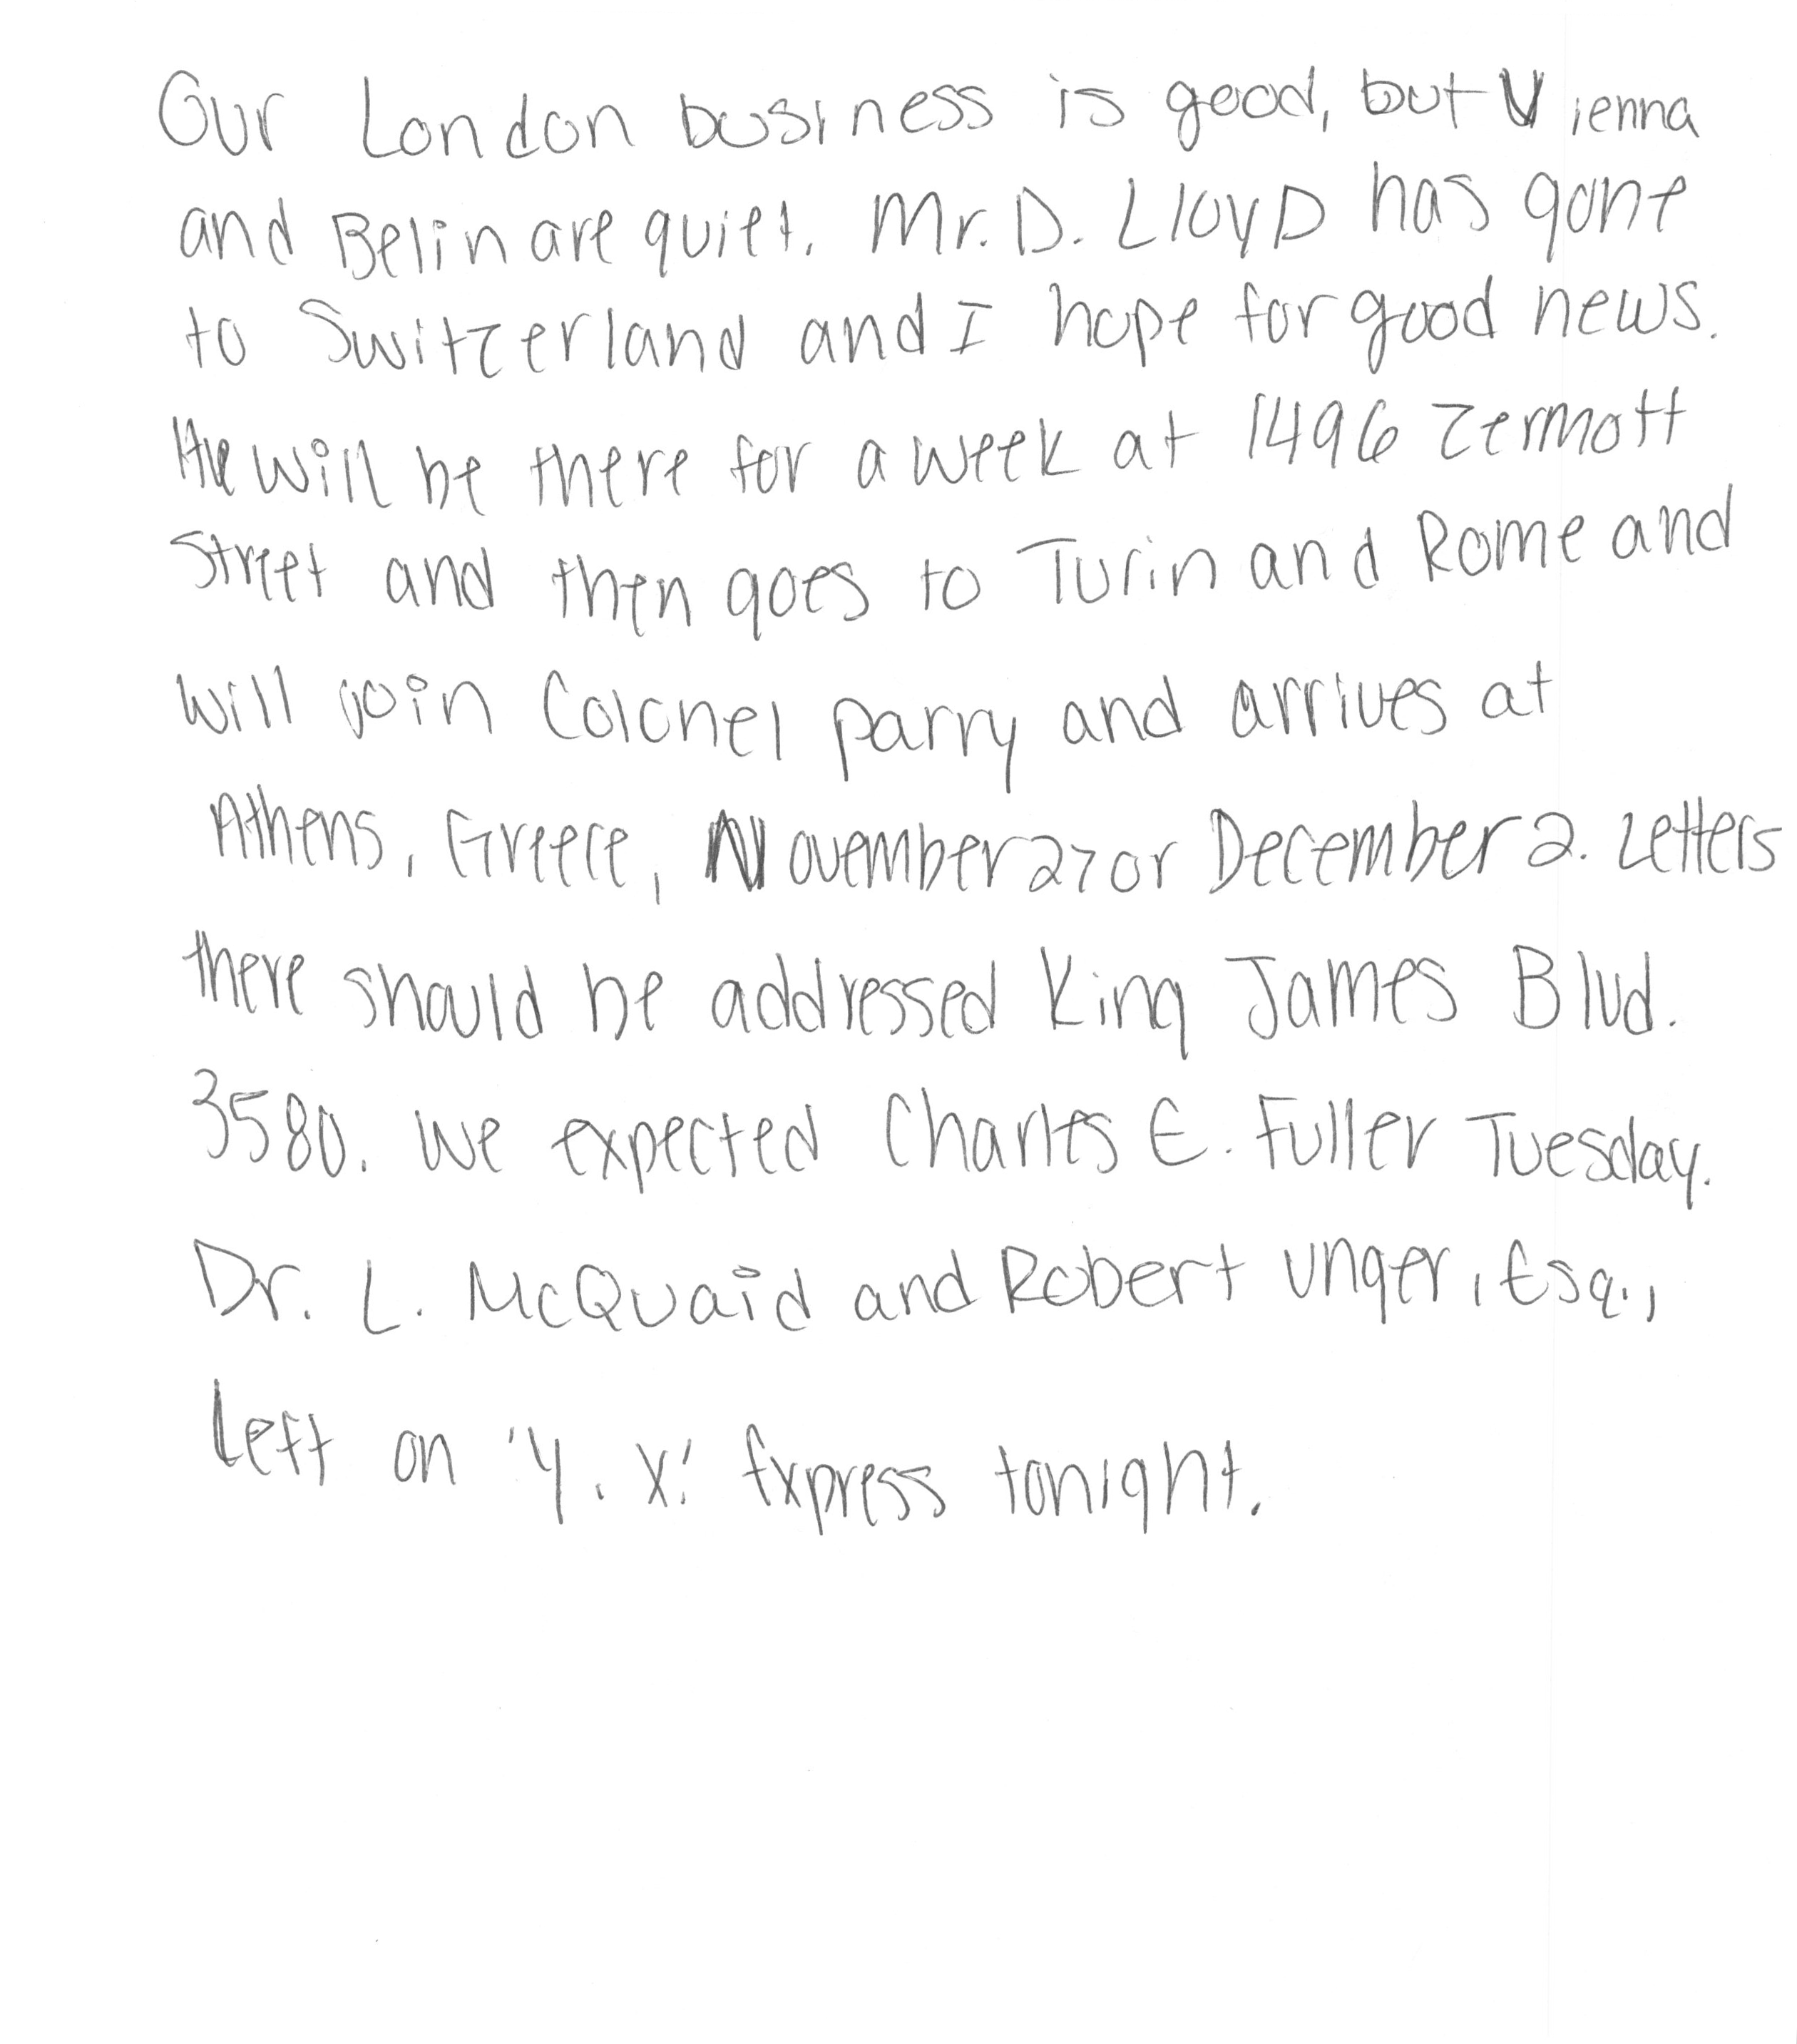 Our London business is good, but Vienna
and Belin are quiet. Mr. D. LloyD has gone
to Switzerland and I hope for good news.
He will be there for a week at 1496 Zermott
Street and then goes to Turin and Rome and
will join Colonel parry and arrives at
Athens, Greece, November 27 or December 2. Letters
there should be addressed King James Blvd.
3580. We expected Charles E. Fuller Tuesday.
Dr. L. McQuaid and Robert Unger, Esq.,
Left on 'Y. X.' Express tonight.